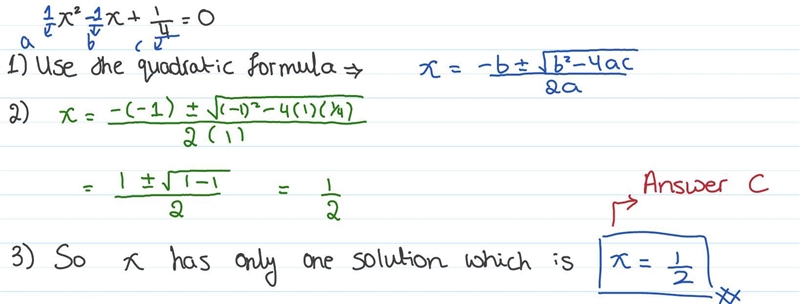 1x² -1x + 1/4 = 0
a b c
1) Use the quadratic formula ⇒ x = (-b ± √(b²-4ac))/(2a)
2) x = (-(-1) ± √((-1)² - 4(1)(1/4)))/(2(1))
= (1 ± √(1-1))/2 = 1/2
Answer C
3) So x has only one solution which is x = 1/2